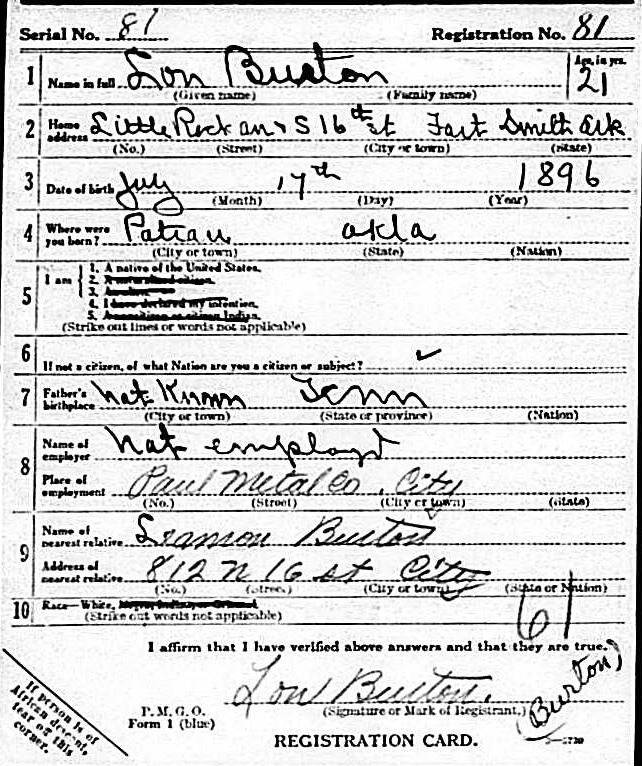 Serial No. 81 Registration No. 81
1 Name in full Lon Burton Age, in yrs. 21
(Given name) (Family name)
2 Home address Little Rock S 16th st Fort Smith Ark
(No.) (Street) (City or town) (State)
3 Date of birth July 17th 1896
(Month) (Day) (Year)
4 Where were you born? okla
(City or town) (State) (Nation)
5 I am
1. A native of the United States.
2. A naturalized citizen.
3. An alien.
4. I have declared my intention.
5. A noncitizen or citizen Indian.
(Strike out lines or words not applicable)
6 If not a citizen, of what Nation are you a citizen or subject? ✓
7 Father's birthplace Not Known Tenn
(City or town) (State or province) (Nation)
8 Name of employer Not employd
Place of employment Paul Metal Co, City
(No.) (Street) (City or town) (State)
9 Name of nearest relative Burton
Address of nearest relative 812 N 16 st City
(No.) (Street) (City or town) (State or Nation)
61
10 Race—White,
(Strike out words not applicable)
I affirm that I have verified above answers and that they are true.
Lon Burton.
(Signature or Mark of Registrant.)
(Burton)
P. M. G. O.
Form 1 (blue)
REGISTRATION CARD.
If person is of
African descent,
tear off this
corner.